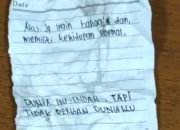 Date
Aku jg ingin bahagia dan,
memiliki kehidupan normal.
DUNIA INI INDAH, TAPI
TIDAK DENGAN DUNIAKU